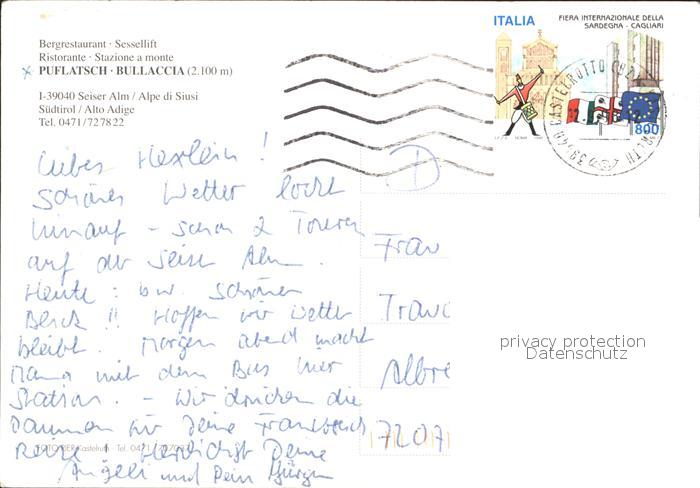 Bergrestaurant · Sessellift
Ristorante · Stazione a monte
x PUFLATSCH · BULLACCIA (2.100 m)
I-39040 Seiser Alm / Alpe di Siusi
Südtirol / Alto Adige
Tel. 0471/727822
ITALIA
FIERA INTERNAZIONALE DELLA
SARDEGNA - CAGLIARI
800
Liebes Hexlein!
Schönes Wetter lockt
hinauf - schon 2 Touren
auf der Seiser Alm.
Heute: schöner
Blick!! Hoffen wir Wetter
bleibt. Morgen abend macht
Mama mit dem Bus hier
Station. - Wir drücken die
Daumen für Deine Frankreich
Reise Herzlichst Deine
Angeli und Dein Jürgen
D
Frau
Trau
Albre
7207
FOTO Kastelruth Tel. 0471
privacy protection
Datenschutz